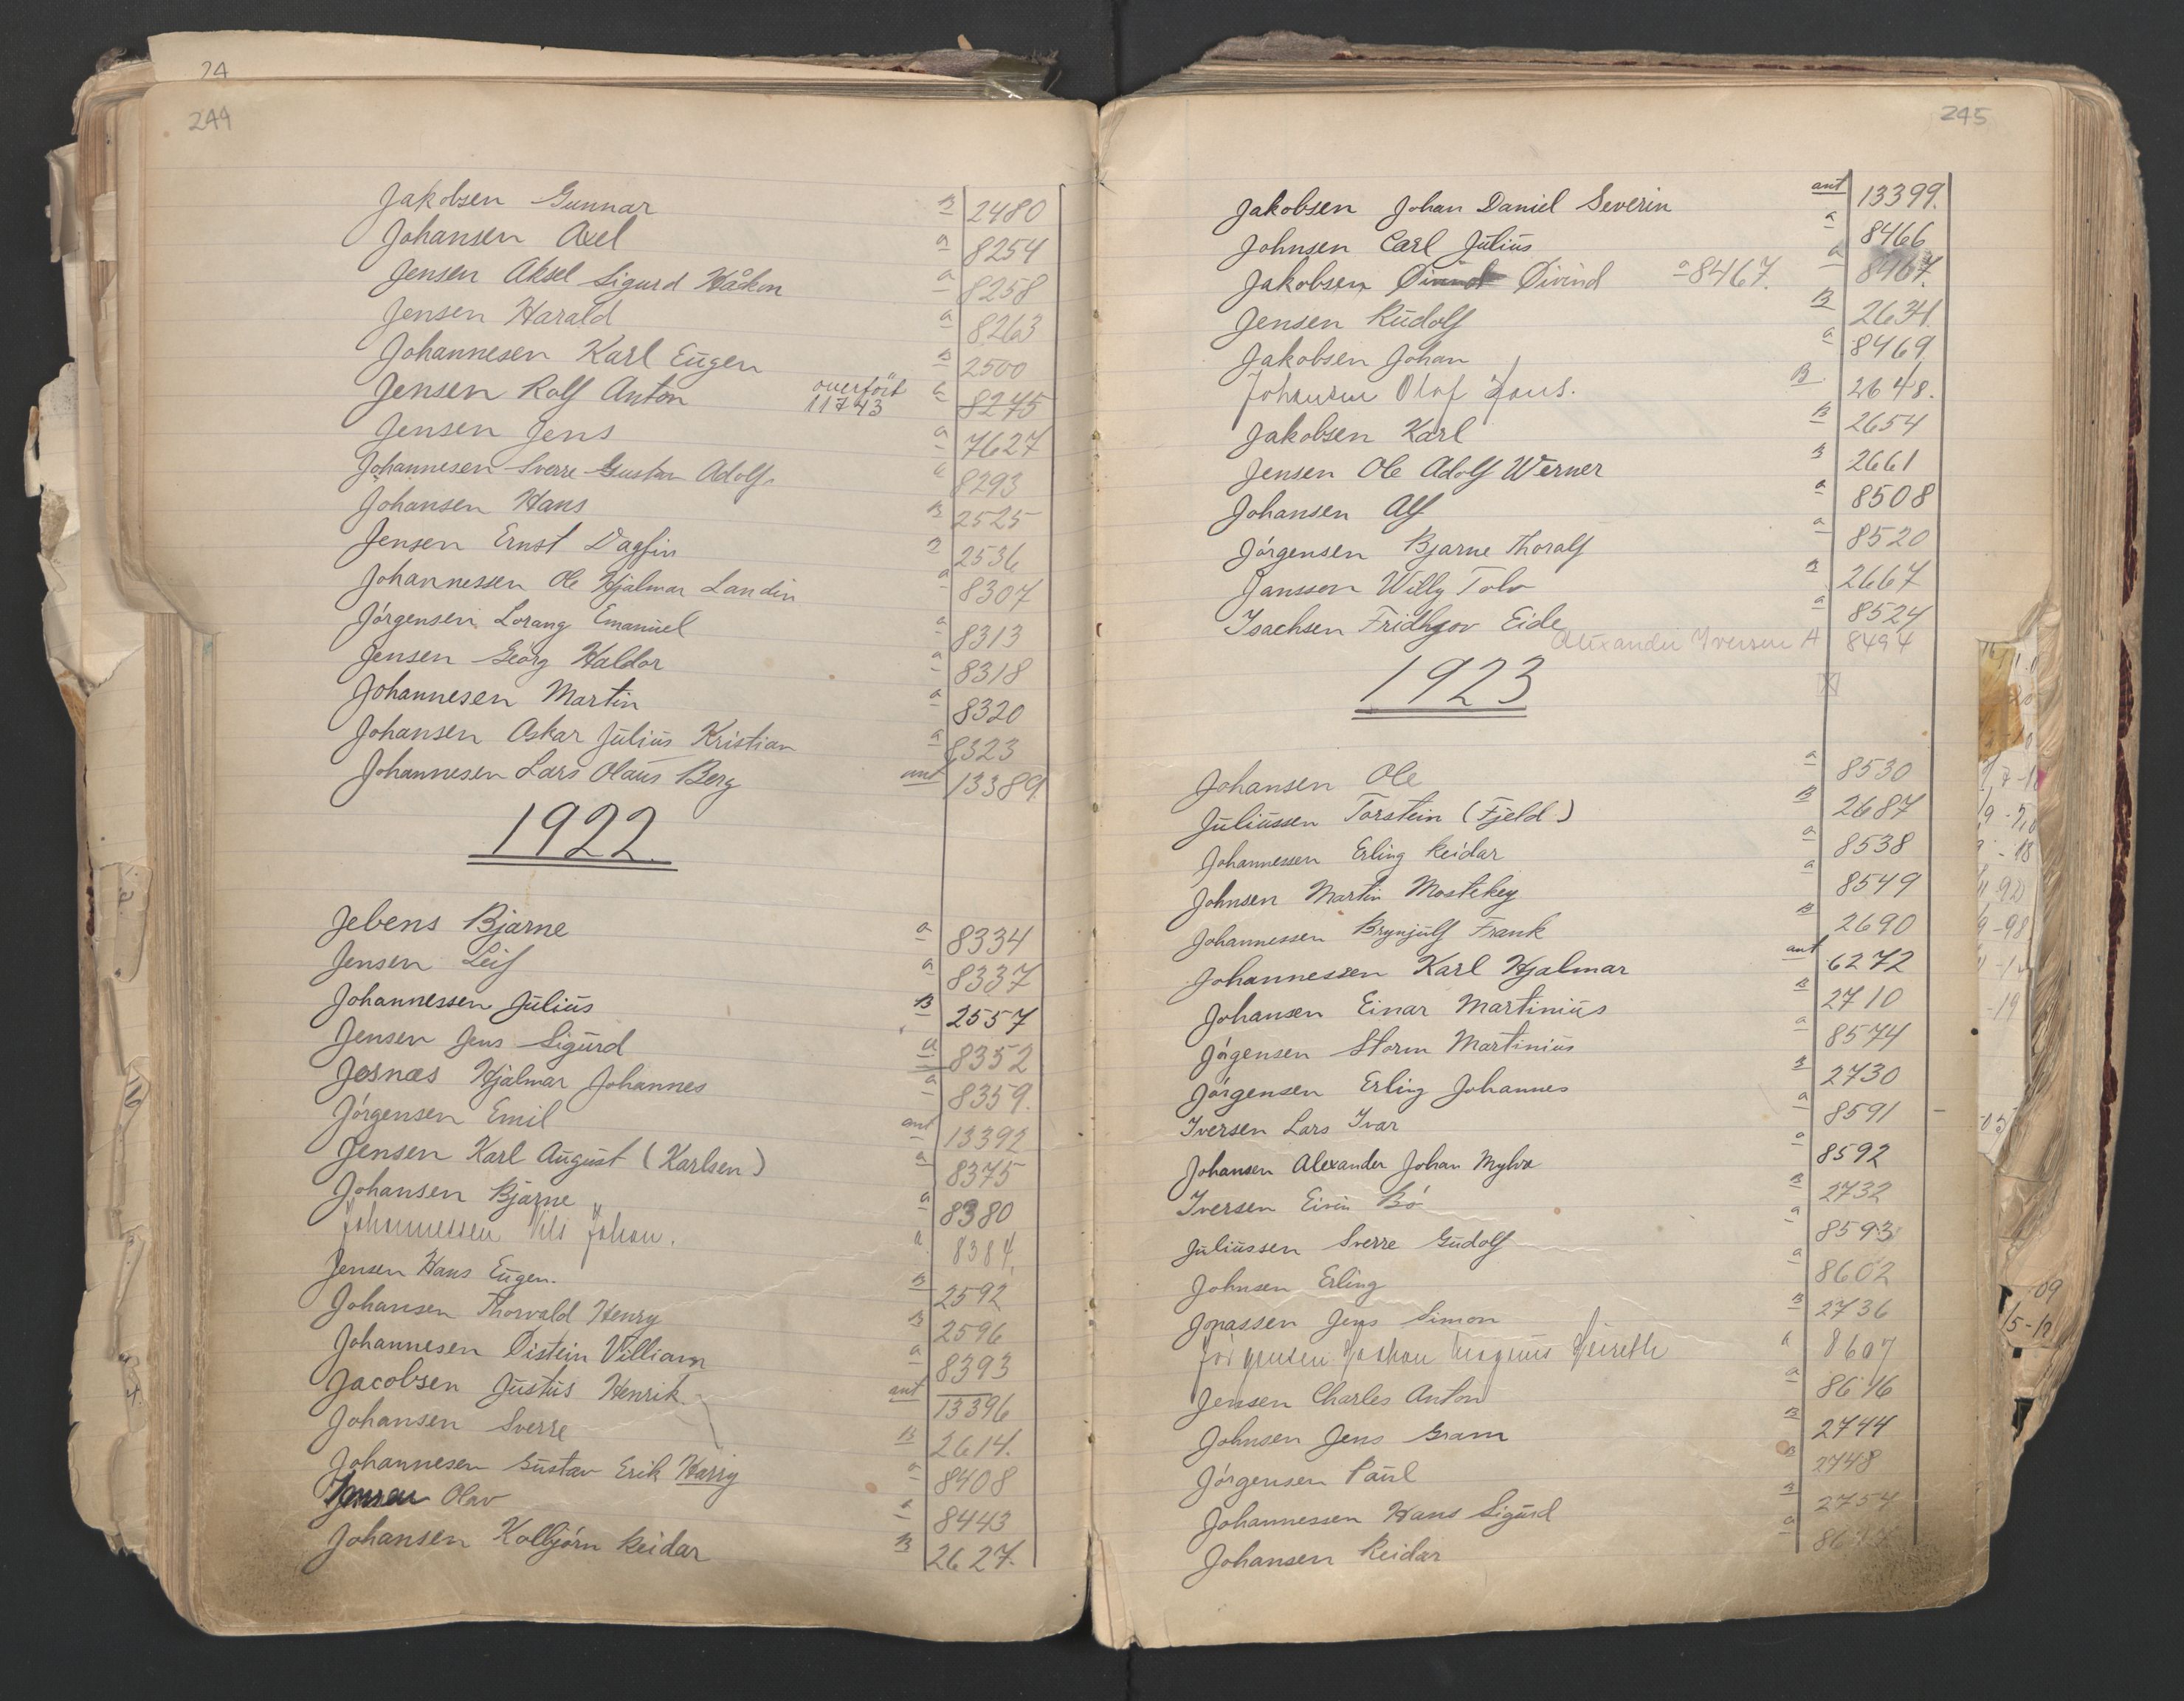 24
244
Jakobsen Gunnar B 2480
Johansen Axel a 8254
Jensen Aksel Sigurd Håkon a 8258
Jensen Harald a 8263
Johannesen Karl Eugen B 2500
Jensen Rolf Anton overfört 11743 a 8275
Jensen Jens a 7627
Johannesen Sverre Gustav Adolf a 8293
Johansen Hans B 2525
Jensen Ernst Dagfin B 2536
Johannessen Ole Hjalmar Landin a 8307
Jörgensen Lorang Emanuel a 8313
Jensen Georg Haldor a 8318
Johannesen Martin a 8320
Johansen Oskar Julius Kristian a 8323
Johannesen Lars Olaus Berg ant 13389
1922.
Jebens Bjarne a 8334
Jensen Leif a 8337
Johannessen Julius B 2557
Jensen Jens Sigurd a 8352
Josnæs Hjalmar Johannes a 8359.
Jörgensen Emil ant 13392
Jensen Karl August (Karlsen) a 8375
Johansen Bjarne a 8380
Johannessen Nils Johan. a. 8384.
Jensen Hans Eugen. B 2592
Johansen Thorvald Henry B 2596
Johannesen Öistein Villiam a 8393
Jacobsen Justus Henrik ant 13396
Johansen Sverre B 2614.
Johannesen Gustav Erik Harry a 8408
Jensen Olav a 8443
Johansen Kolbjörn Reidar B 2627.
245
Jakobsen Johan Daniel Severin ant 13399.
Johnsen Carl Julius a 8466
Jakobsen Öivind Öivind a 8467. a 8467.
Jensen Rudolf B 2634.
Jakobsen Johan a 8469
Johansen Olaf Hans. B. 2648.
Jakobsen Karl B 2654
Jensen Ole Adolf Werner B 2661
Johansen Alf a 8508
Jörgensen Bjarne Thoralf a 8520
Jansson Willy Tolv B 2667
Isachsen Fridhjov Eide a 8524
Alexander Iversen A 8494
1923
Johansen Ole a 8530
Juliussen Torstein (Fjeld) B 2687
Johannessen Erling Reidar a 8538
Johnsen Martin a 8549
Johannessen Brynjulf Frank B 2690
Johannessen Karl Hjalmar ant 6272
Johansen Einar Martinius B 2710
Jörgensen Storm Martinius a 8574
Jörgensen Erling Johannes B 2730
Iversen Lars Ivar a 8591
Johansen Alexander Johan a 8592
Iversen Eivin Bö B 2732
Juliussen Sverre Gudolf a 8593
Johnsen Erling a 8602
Jonassen Jens Simon B 2736
Jörgensen Magnus a 8607
Jensen Charles Anton a 8616
Johnsen Jens Gram B 2744
Jörgensen Paul B 2748
Johannessen Hans Sigurd B 2754
Johansen Reidar a